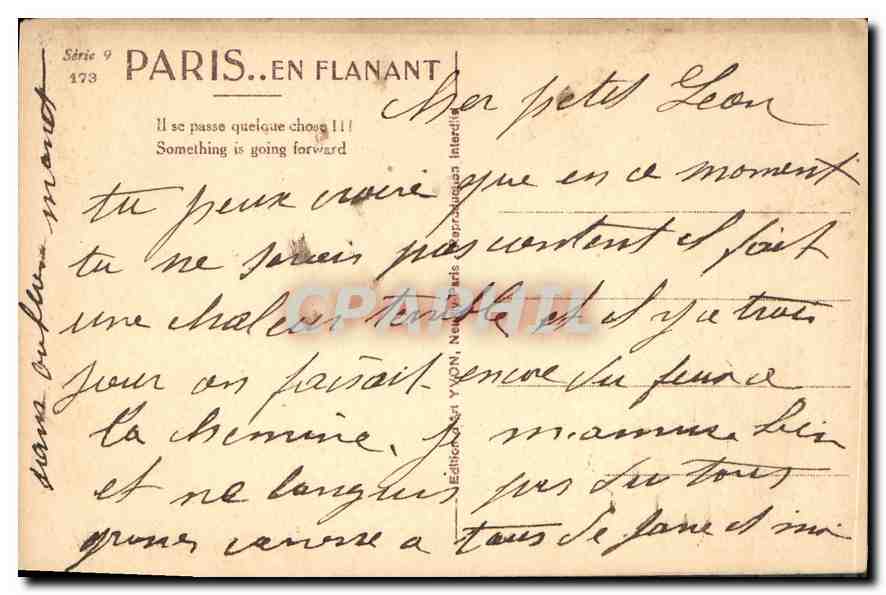 Série 9
173
PARIS.. EN FLANANT
Il se passe quelque chose !!!
Something is going forward
Edition d'Art YVON, Neuilly Paris Reproduction Interdite
CPAPHIL
Cher petit Leon
tu peux croire que en ce moment
tu ne serais pas content il fait
une chaleur terrible et il y a trois
jour on faisait encore du feu a
la chemine, je m'amuse bien
et ne languis pas du tous
grosses caresse a tous de Jane et moi
sans oublier monet